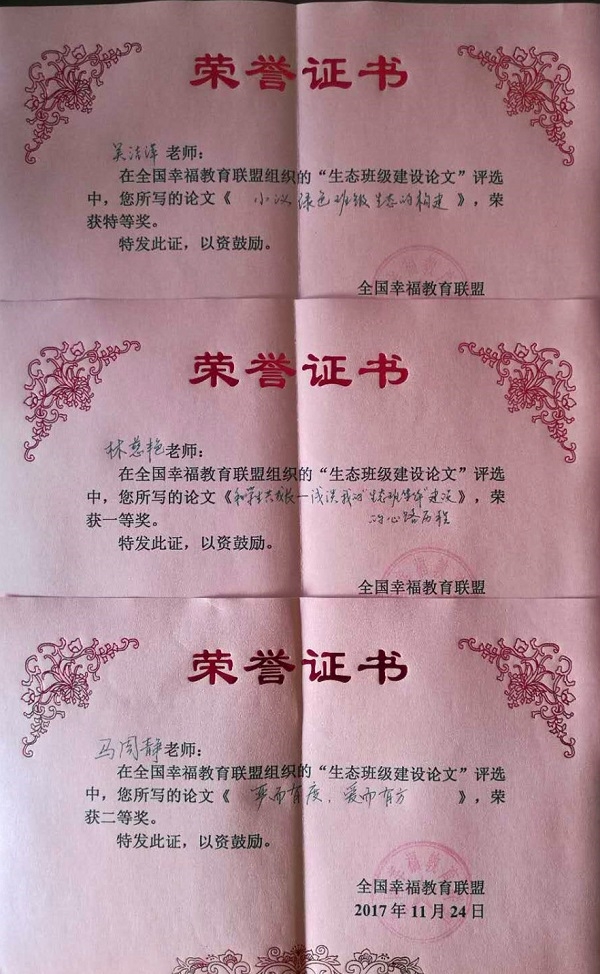 荣誉证书
吴洁泽 老师：
在全国幸福教育联盟组织的“生态班级建设论文”评选
中，您所写的论文《 小议绿色班级生态的构建 》，荣
获特等奖。
特发此证，以资鼓励。
全国幸福教育联盟
荣誉证书
林慈艳老师：
在全国幸福教育联盟组织的“生态班级建设论文”评选
中，您所写的论文《和学生共成长—浅谈我的“生态班集体”建设》，荣
的心路历程
获一等奖。
特发此证，以资鼓励。
全国幸福教育联盟
荣誉证书
马周静老师：
在全国幸福教育联盟组织的“生态班级建设论文”评选
中，您所写的论文《 严而有度，爱而有方 》，荣
获二等奖。
特发此证，以资鼓励。
全国幸福教育联盟
2017 年 11 月 24 日